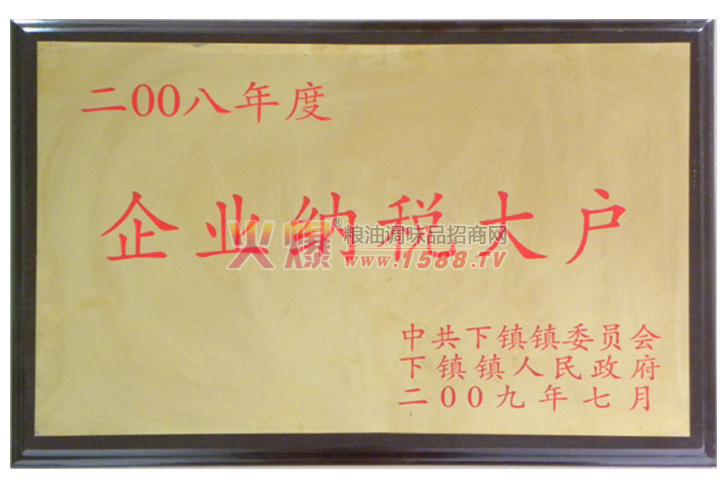 二00八年度
企业纳税大户
火爆®粮油调味品招商网
www.1588.TV
中共下镇镇委员会
下镇镇人民政府
二00九年七月